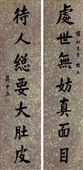 處世無妨真面目
待人總要大肚皮